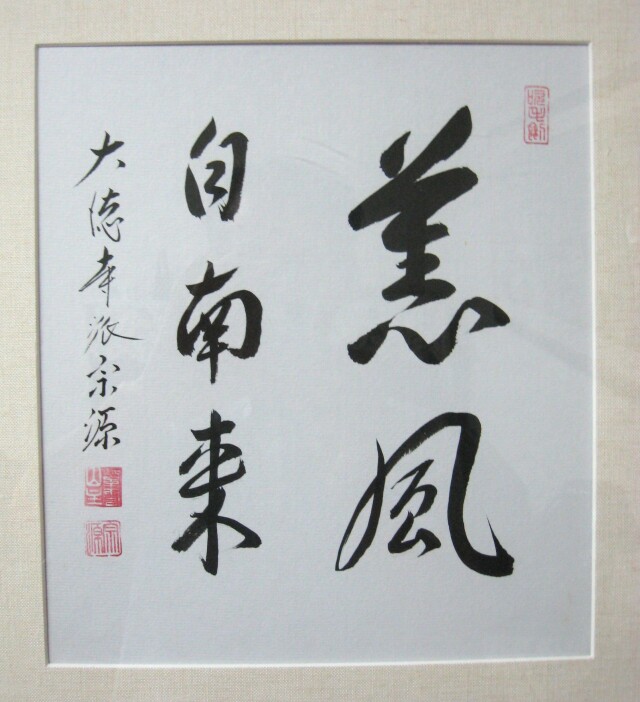 薫風
自南来
大徳寺派宗源